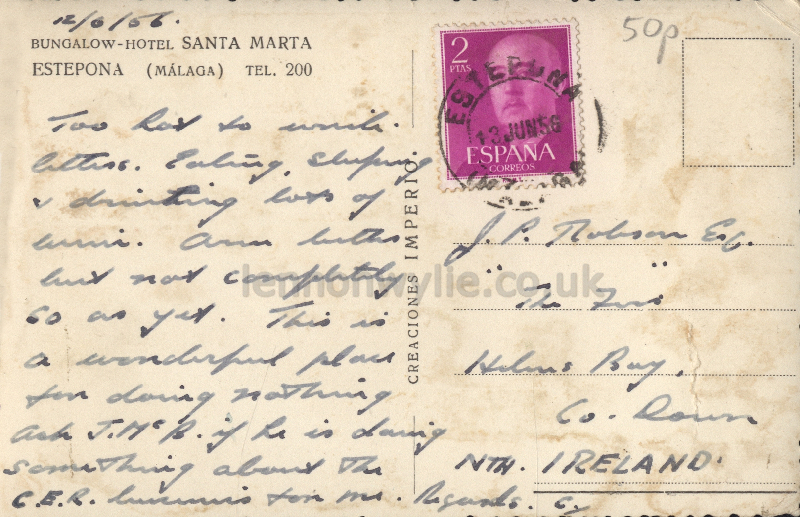 12/6/56.
50p
BUNGALOW-HOTEL SANTA MARTA
ESTEPONA (MÁLAGA) TEL. 200
2
PTAS
ESTEPONA
13 JUN 56
ESPAÑA
CORREOS
Too hot to write
letters. Eating, sleeping
& drinking lots of
wine. Am better
but not completely
so as yet. This is
a wonderful place
for doing nothing
Ask J. McB. if he is doing
something about the
C.E.R. business for me. Regards. C.
CREACIONES IMPERIO
J. P. Robson Esq.
"The Firs"
Helens Bay,
Co. Down
NTH. IRELAND.
lennonwylie.co.uk